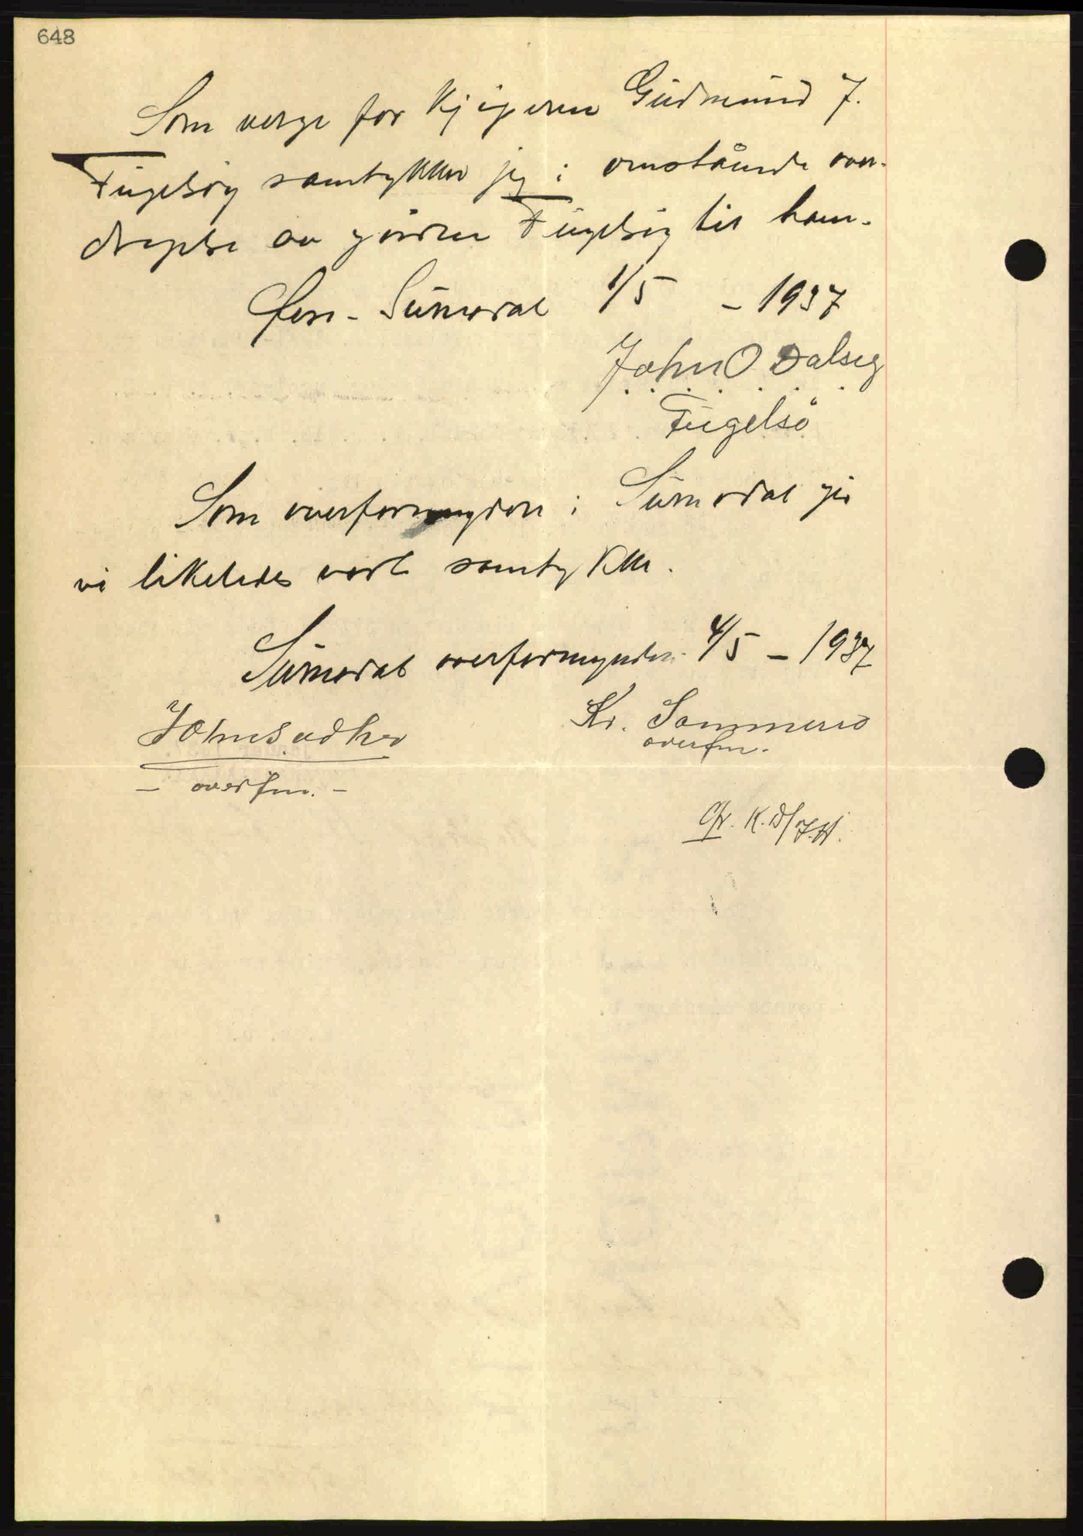 648
Som verge for kjøperen Gudmund J.
Fugelsøy samtykker jeg i omstående over-
dragelse av gården Fugelsøy til ham.
Øvre-Surnadal 1/5 - 1937
John O Dalseg
Fugelsø
Som overformyndere i Surnadal gir
vi likeledes vort samtykke.
Surnadal overformynderi 4/5 - 1937
Kr. Sommerro
overfm.
John Sæther
- overfm. -
K.D/J.H.